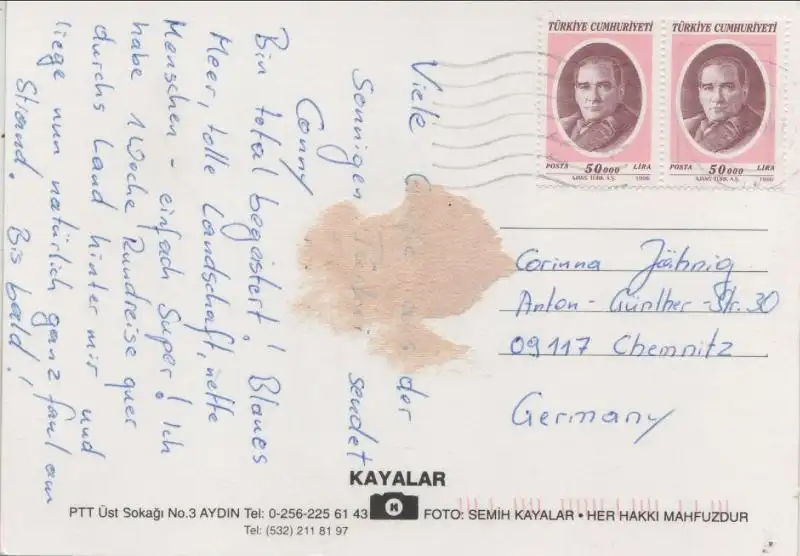 Viele aus der
Sonnigen Türkei sendet
Conny
Bin total begeistert! Blaues
Meer, tolle Landschaft, nette
Menschen - einfach Super! Ich
habe 1 Woche Rundreise quer
durchs Land hinter mir und
liege nun natürlich ganz faul am
Strand. Bis bald!
TÜRKİYE CUMHURİYETİ
POSTA 50000 LİRA
AJANS-TÜRK A.Ş. 1996
TÜRKİYE CUMHURİYETİ
POSTA 50000 LİRA
AJANS-TÜRK A.Ş. 1996
Corinna Jähnig
Anton-Günther-Str. 30
09117 Chemnitz
Germany
KAYALAR
PTT Üst Sokağı No.3 AYDIN Tel: 0-256-225 61 43 FOTO: SEMİH KAYALAR • HER HAKKI MAHFUZDUR
Tel: (532) 211 81 97